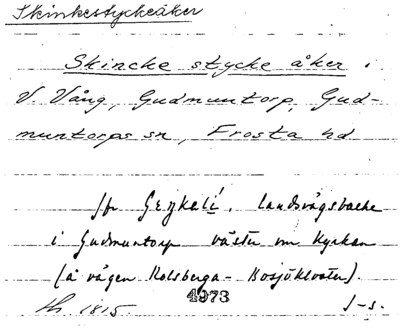 Skinkestyckeåker
Skincke stycke åker i
V. Vång, Gudmuntorp, Gud-
muntorps sn, Frosta hd
jfr landsvägsbacke
i Gudmuntorp väster om kyrkan
(å vägen Rolsberga - Bosjökloster).
1815
4973
J-s.